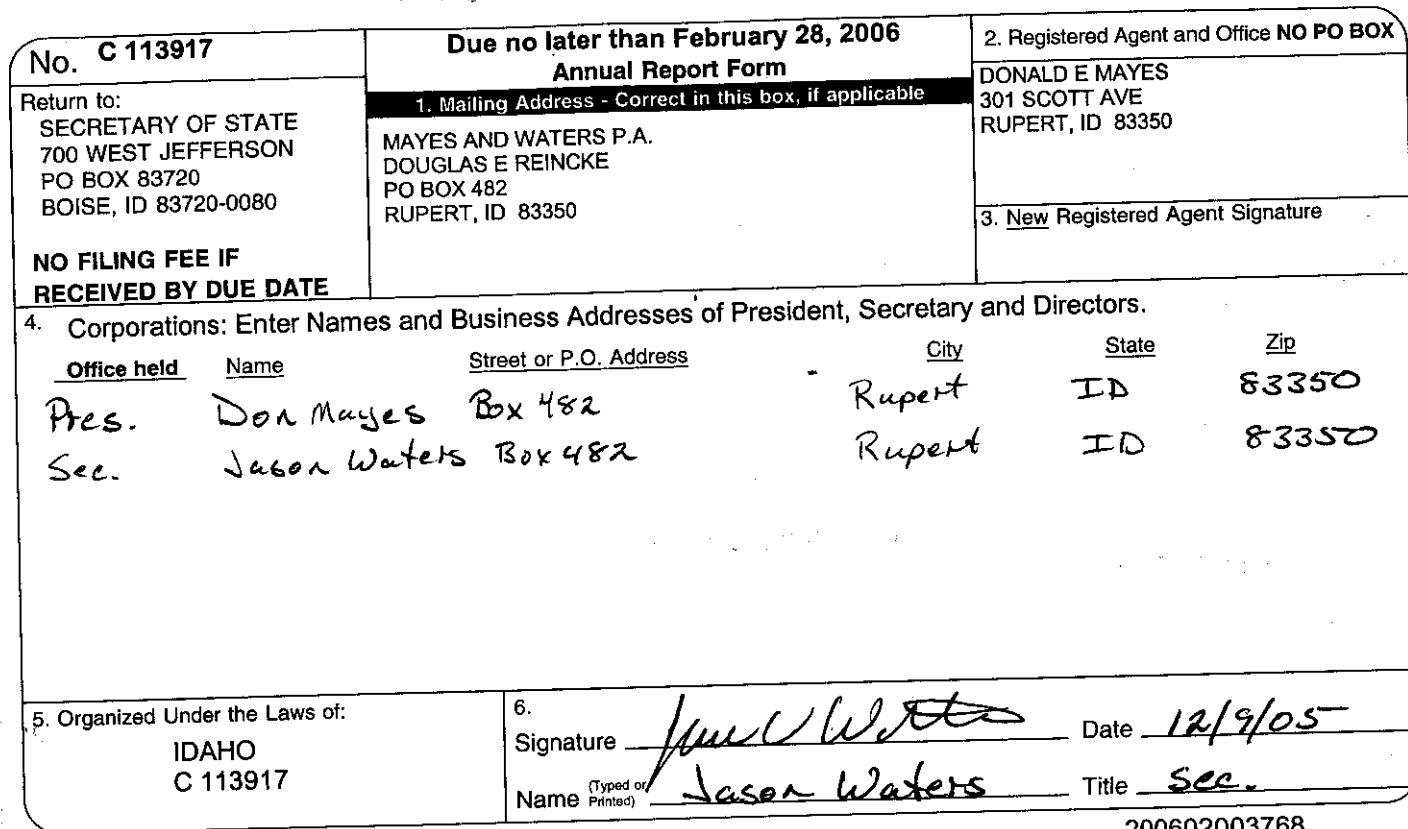 No. C 113917
Return to:
SECRETARY OF STATE
700 WEST JEFFERSON
PO BOX 83720
BOISE, ID 83720-0080
NO FILING FEE IF
RECEIVED BY DUE DATE
Due no later than February 28, 2006
Annual Report Form
1. Mailing Address - Correct in this box, if applicable
MAYES AND WATERS P.A.
DOUGLAS E REINCKE
PO BOX 482
RUPERT, ID 83350
2. Registered Agent and Office NO PO BOX
DONALD E MAYES
301 SCOTT AVE
RUPERT, ID 83350
3. New Registered Agent Signature
4. Corporations: Enter Names and Business Addresses of President, Secretary and Directors.
Office held Name Street or P.O. Address City State Zip
Pres. Don Mayes Box 482 Rupert ID 83350
Sec. Jason Waters Box 482 Rupert ID 83350
5. Organized Under the Laws of:
IDAHO
C 113917
6.
Signature Date 12/9/05
Name (Typed or Printed) Jason Waters Title Sec.
200602003768